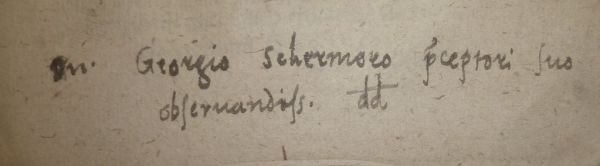 Dn. Georgio Schermoro p̄ceptori ſuo
obſeruandiſſ. d̄d̄